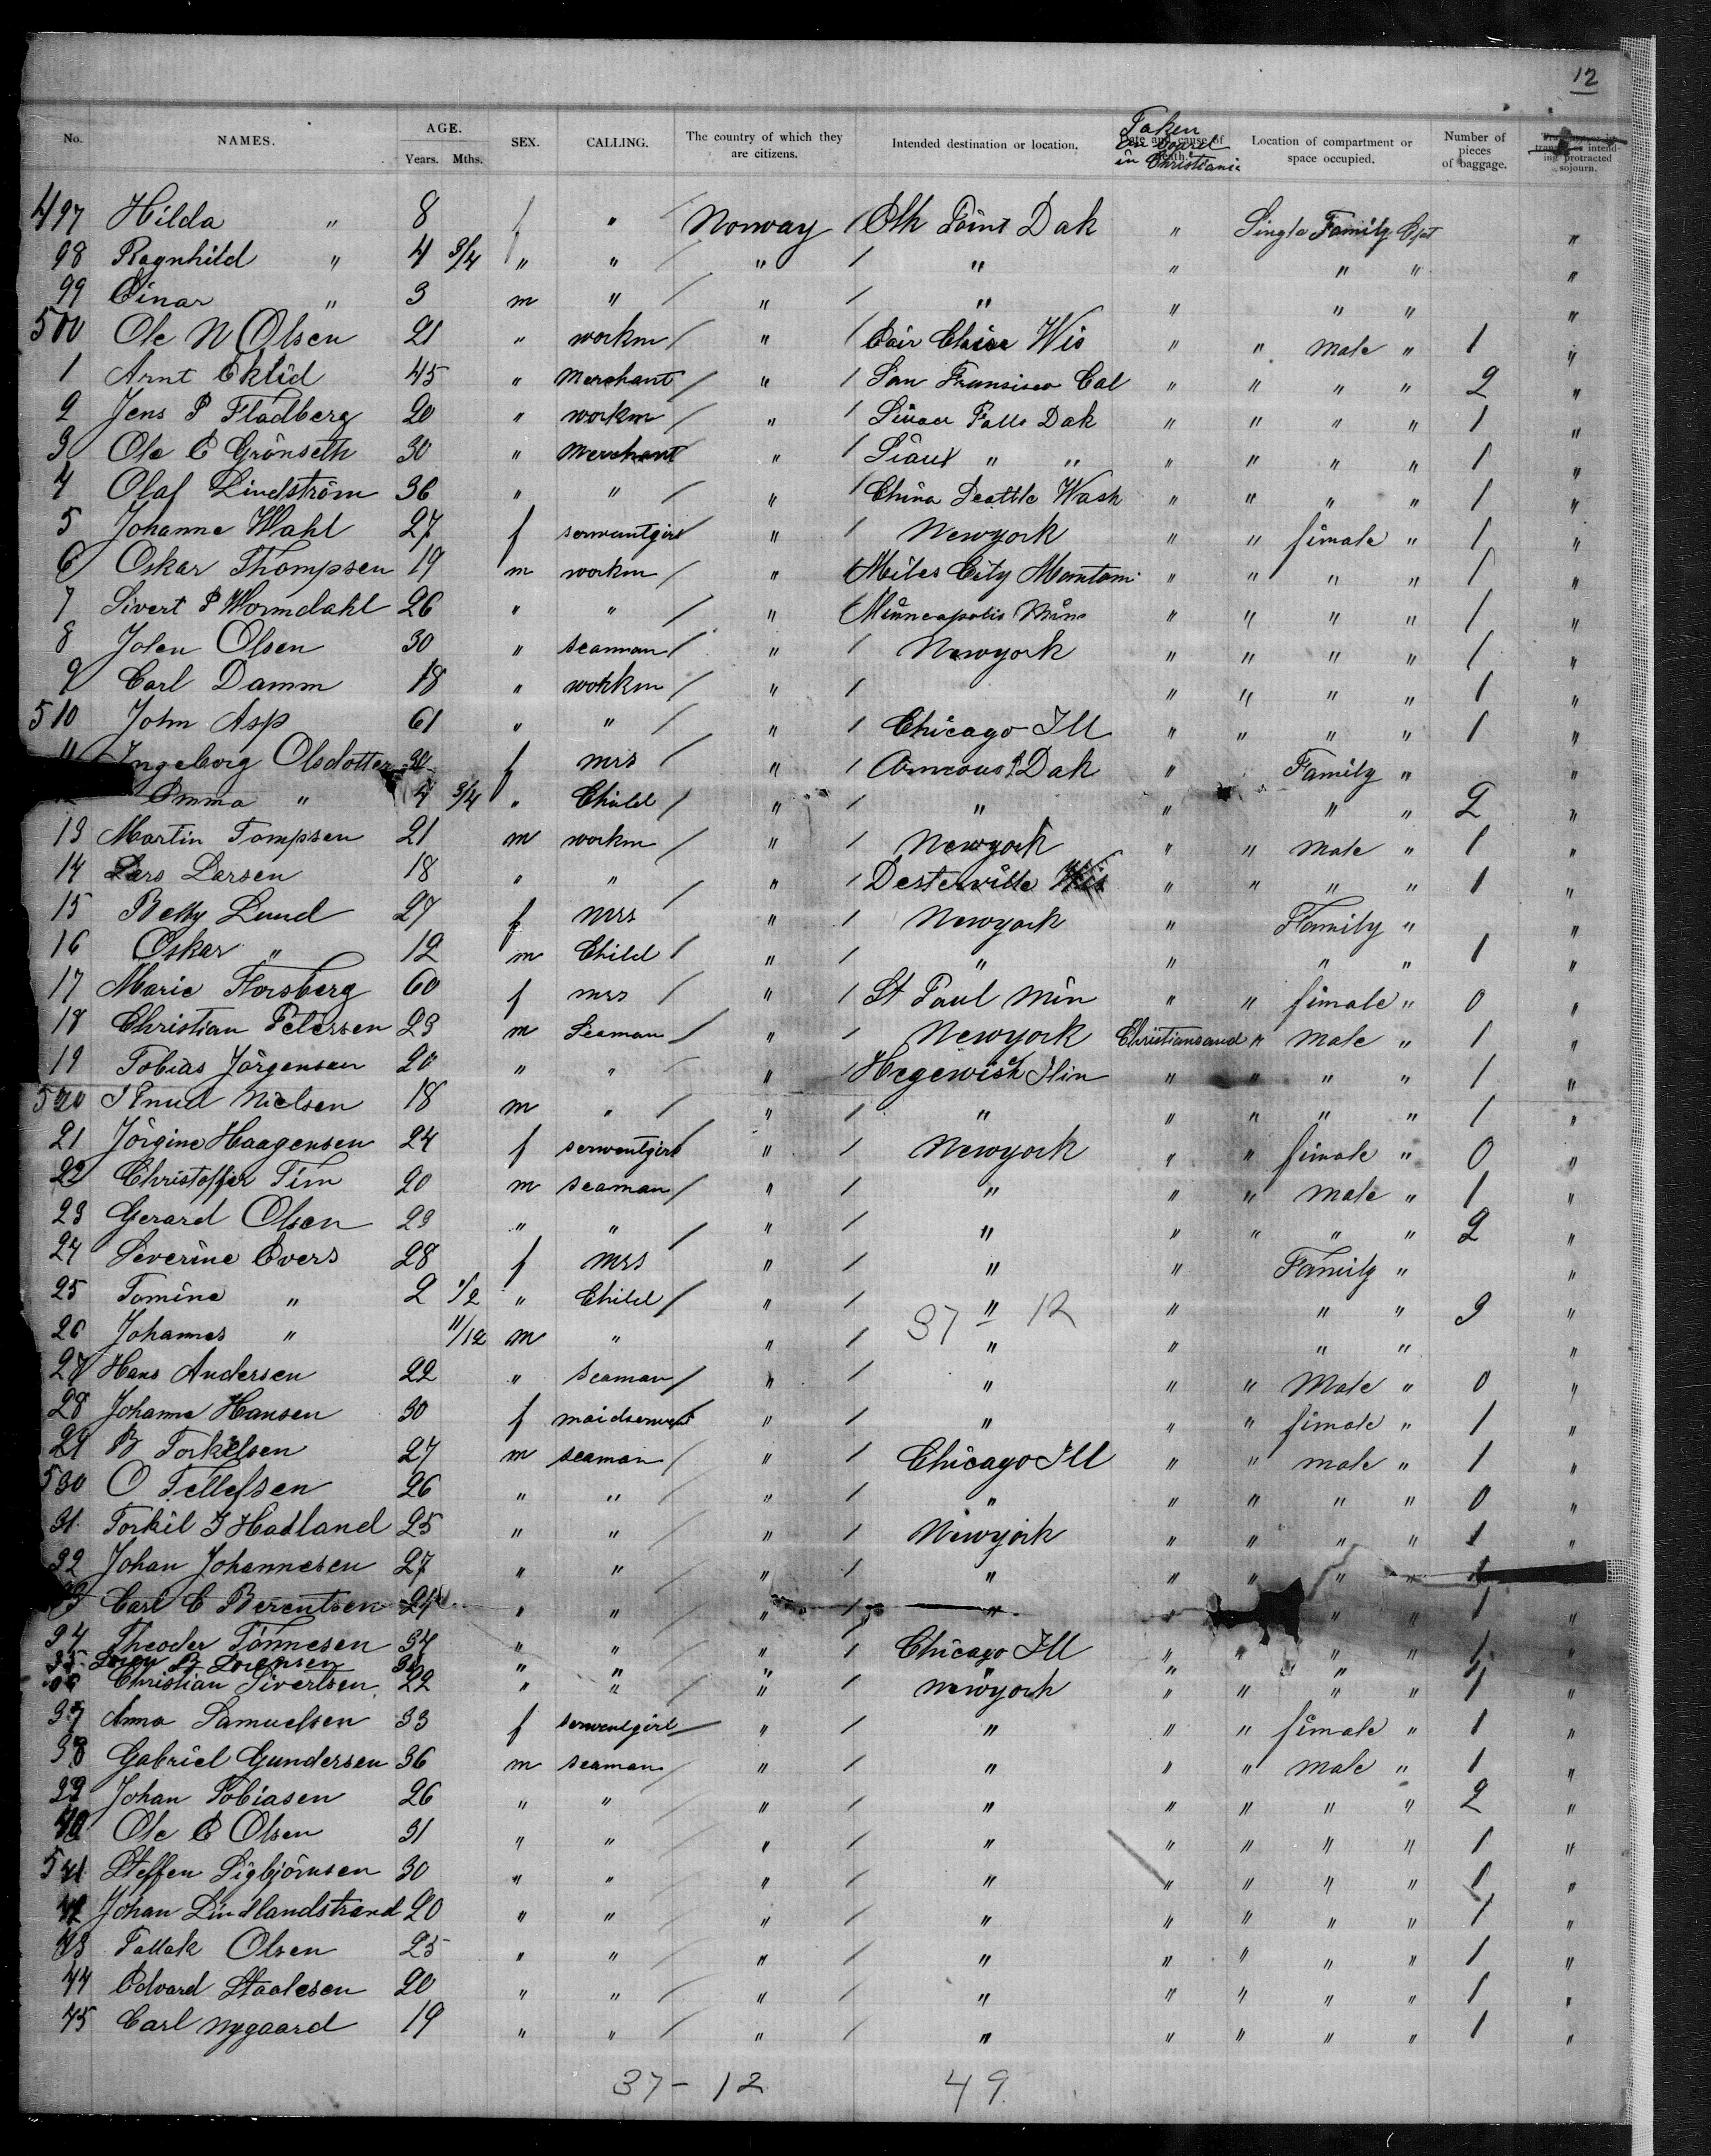 12
No. NAMES. AGE. Years. Mths. SEX. CALLING. The country of which they are citizens. Intended destination or location. Taken on board in Christiania Location of compartment or space occupied. Number of pieces of baggage.
497 Hilda " 8 f " Norway / Elk Point Dak " Single Family Cpt "
98 Ragnhild " 4 3/4 " " / " / " " " " "
99 Einar " 3 m " / " / " " " " "
500 Ole N Olsen 21 " workm / " / Wis " " male " 1 "
1 Arnt Eklid 45 " Merchant / " / San Fransisco Cal " " " " 2 "
2 Jens P Fladberg 20 " workm / " / Falls Dak " " " " 1 "
3 Ole E Grönseth 30 " Merchant " / Sioux " " " " " " 1 "
4 Olaf Lindström 36 " " / " / China Seattle Wash " " " " 1 "
5 Johanne Wahl 27 f servantgirl " / Newyork " " fimale " 1 "
6 Oskar Thompsen 19 m workm / " / Miles City Montam " " " " 1 "
7 Sivert P Wormdahl 26 " " / " / Minneapolis Minn " " " " 1 "
8 Johen Olsen 30 " seaman / " / Newyork " " " " 1 "
9 Carl Damm 18 " workm / " / " " " " 1 "
510 John Asp 61 " " / " / Chicago Ill " " " " 1 "
11 Ingeborg Olsdotter 30 f mrs / " / Dak " Family " "
Emma " 4 3/4 " Child / " / " " " " 2 "
13 Martin Tompsen 21 m workm / " / Newyork " " male " 1 "
14 Lars Larsen 18 " " / " / Desterville Wis " " " " 1 "
15 Betty Lund 27 f mrs " / Newyork " Family " "
16 Oskar " 12 m Child / " / " " " " 1 "
17 Marie Forsberg 60 f mrs / " / St Paul Min " " fimale " 0 "
18 Christian Petersen 23 m Seaman / " / Newyork Christiansand " male " 1 "
19 Tobias Jörgensen 20 " " " / Hegewisk Ilin " " " " 1 "
520 Knud Nielsen 18 m " / " / " " " " " 1 "
21 Jörgine Haagensen 24 f servantgirl " / Newyork " " fimale " 0 "
22 Christoffer Tim 20 m seaman / " / " " " male " 1 "
23 Gerard Olsen 23 " " / " / " " " " " 2 "
24 Severine Evers 28 f Mrs " / " " Family " "
25 Tomine " 2 1/2 " Child / " / " " " " 3 "
37 - 12
26 Johannes " 11/12 m " " / " " " " "
27 Hans Andersen 22 " seaman / " / " " " Male " 0 "
28 Johanne Hansen 30 f maidservant " / " " " fimale " 1 "
29 B Torkelsen 27 m seaman / " / Chicago Ill " " male " 1 "
530 O Tellefsen 26 " " / " / " " " " " 0 "
31 Torkil J Hadland 25 " " / " / Newyork " " " " 1 "
32 Johan Johannesen 27 " " / " / " " " " " 1
Carl C Berentsen 24 " " / " / " " " " 1 "
34 Theoder Tönnesen 34 " " / " / Chicago Ill " " " " 1 "
35 Sören B Sorensen " " " " " "
Christian Sivertsen 22 " " / " / Newyork " " " " 1 "
37 Anna Samuelsen 33 f servantgirl " / " " " fimale " 1 "
38 Gabriel Gundersen 36 m seaman / " / " " " male " 1 "
39 Johan Tobiasen 26 " " / " / " " " " " 2 "
40 Ole E Olsen 31 " " / " / " " " " " 1 "
541 Steffen Sigbjörnsen 30 " " / " / " " " " " 1 "
42 Johan Lindlandstrand 20 " " / " / " " " " " 1 "
43 Tallak Olsen 25 " " / " / " " " " " 1 "
44 Edvard Staalesen 20 " " / " / " " " " " 1 "
45 Carl Nygaard 19 " " / " / " " " " " 1 "
37 - 12 49